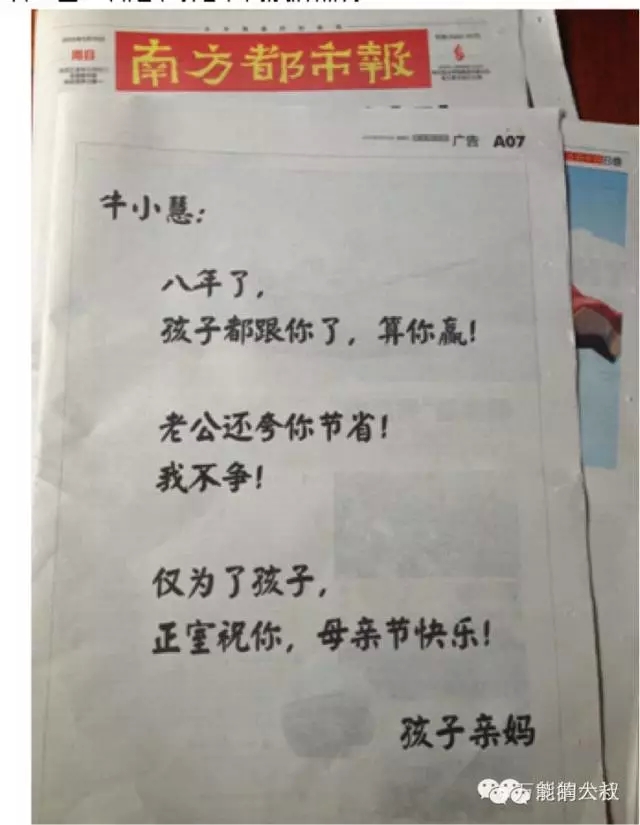 南方都市報
周日
广告 A07
牛小慧：
八年了，
孩子都跟你了，算你赢！
老公还夸你节省！
我不争！
仅为了孩子，
正室祝你，母亲节快乐！
孩子亲妈